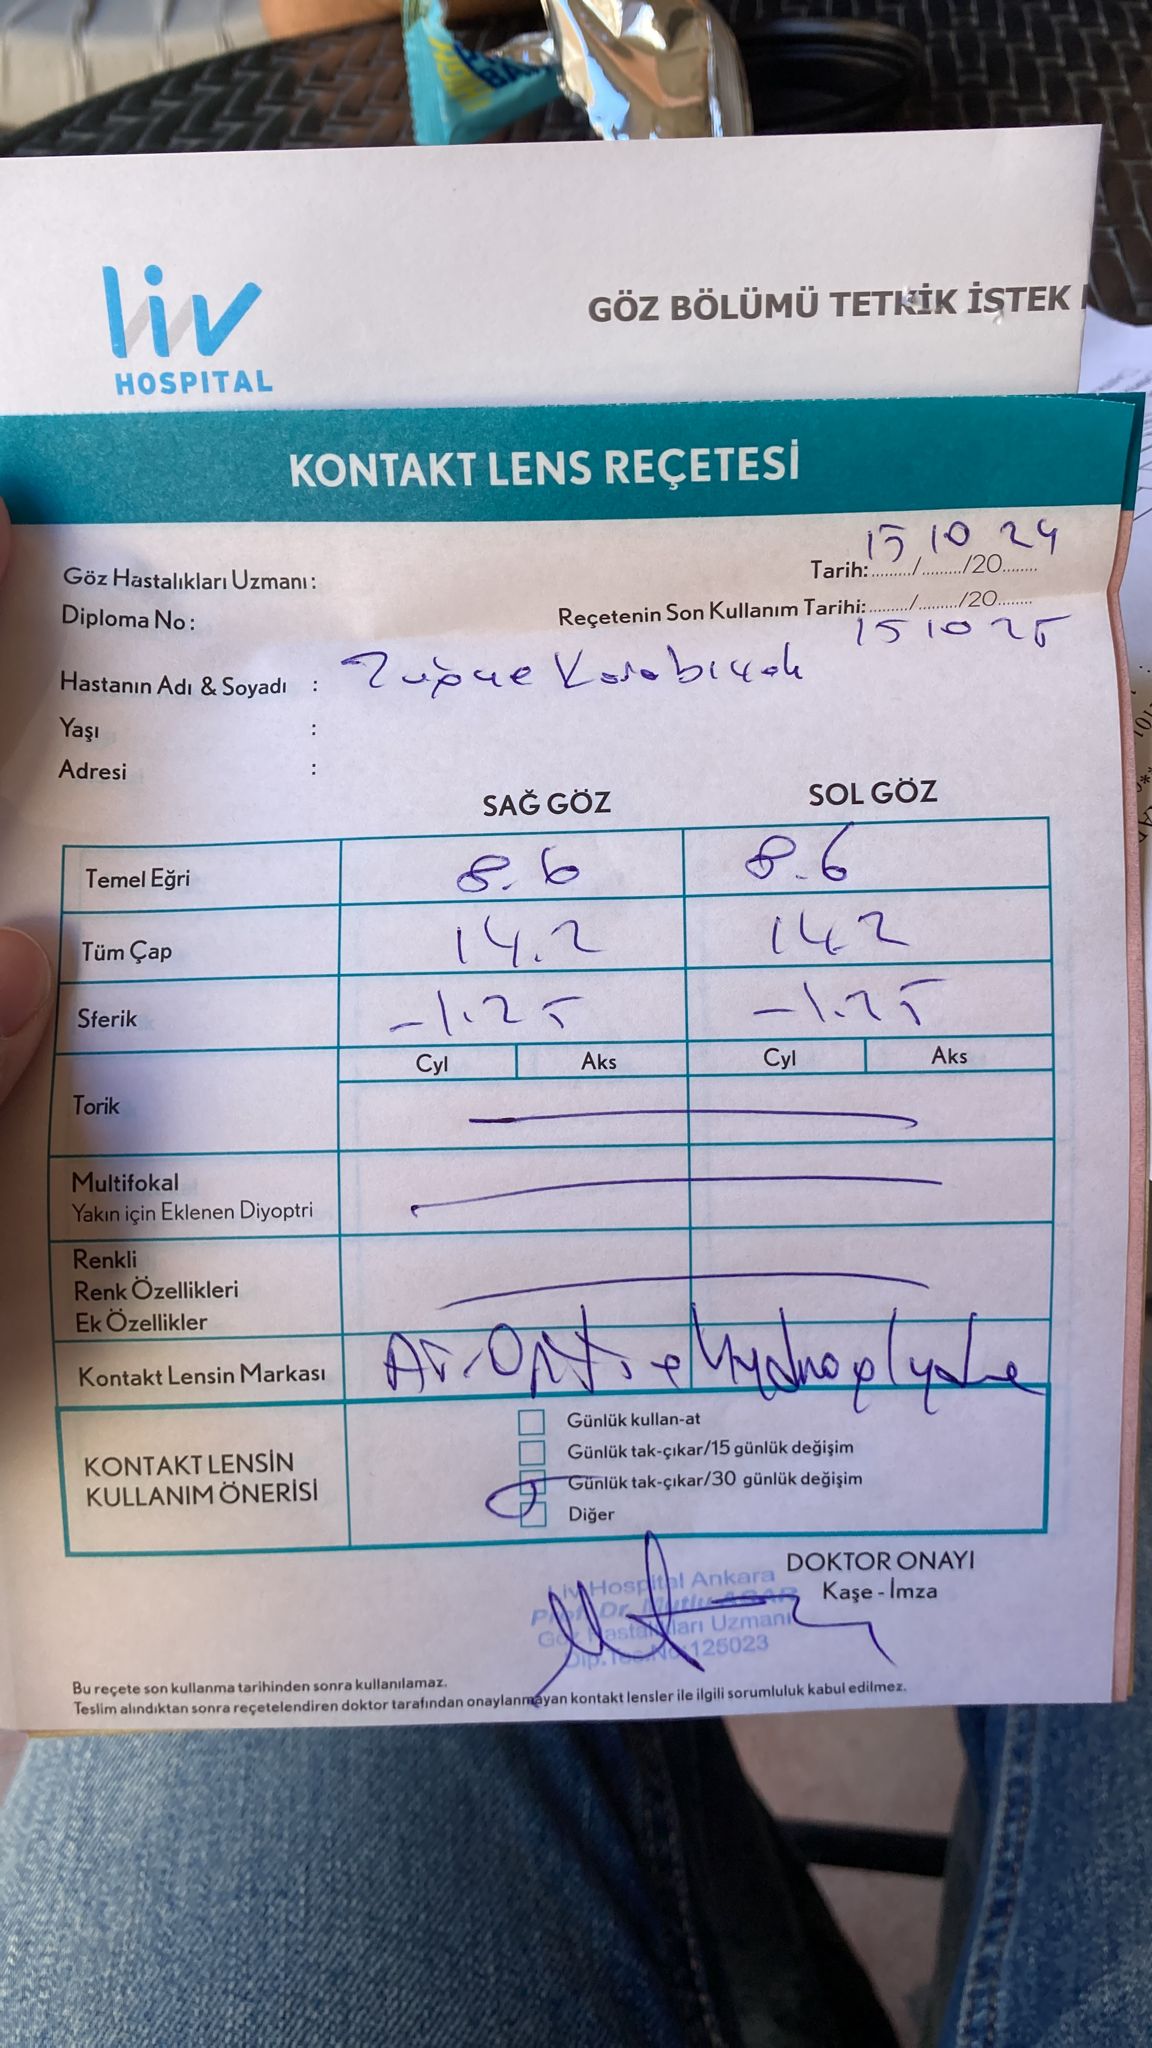 liv
HOSPITAL
GÖZ BÖLÜMÜ TETKİK İSTEK
KONTAKT LENS REÇETESİ
Göz Hastalıkları Uzmanı:
Tarih: 15/10/2024
Diploma No:
Reçetenin Son Kullanım Tarihi: 15/10/2025
Hastanın Adı & Soyadı :
Yaşı :
Adresi :
SAĞ GÖZ SOL GÖZ
Temel Eğri 8.6 8.6
Tüm Çap 14.2 14.2
Sferik -1.25 -1.25
Cyl Aks Cyl Aks
Torik
Multifokal
Yakın için Eklenen Diyoptri
Renkli
Renk Özellikleri
Ek Özellikler
Kontakt Lensin Markası
KONTAKT LENSİN
KULLANIM ÖNERİSİ
Günlük kullan-at
Günlük tak-çıkar/15 günlük değişim
Günlük tak-çıkar/30 günlük değişim
Diğer
DOKTOR ONAYI
Kaşe - İmza
Liv Hospital Ankara
Prof. Dr. Mutlu ACAR
Göz Hastalıkları Uzmanı
Dip.Tes.No:125023
Bu reçete son kullanma tarihinden sonra kullanılamaz.
Teslim alındıktan sonra reçetelendiren doktor tarafından onaylanmayan kontakt lensler ile ilgili sorumluluk kabul edilmez.